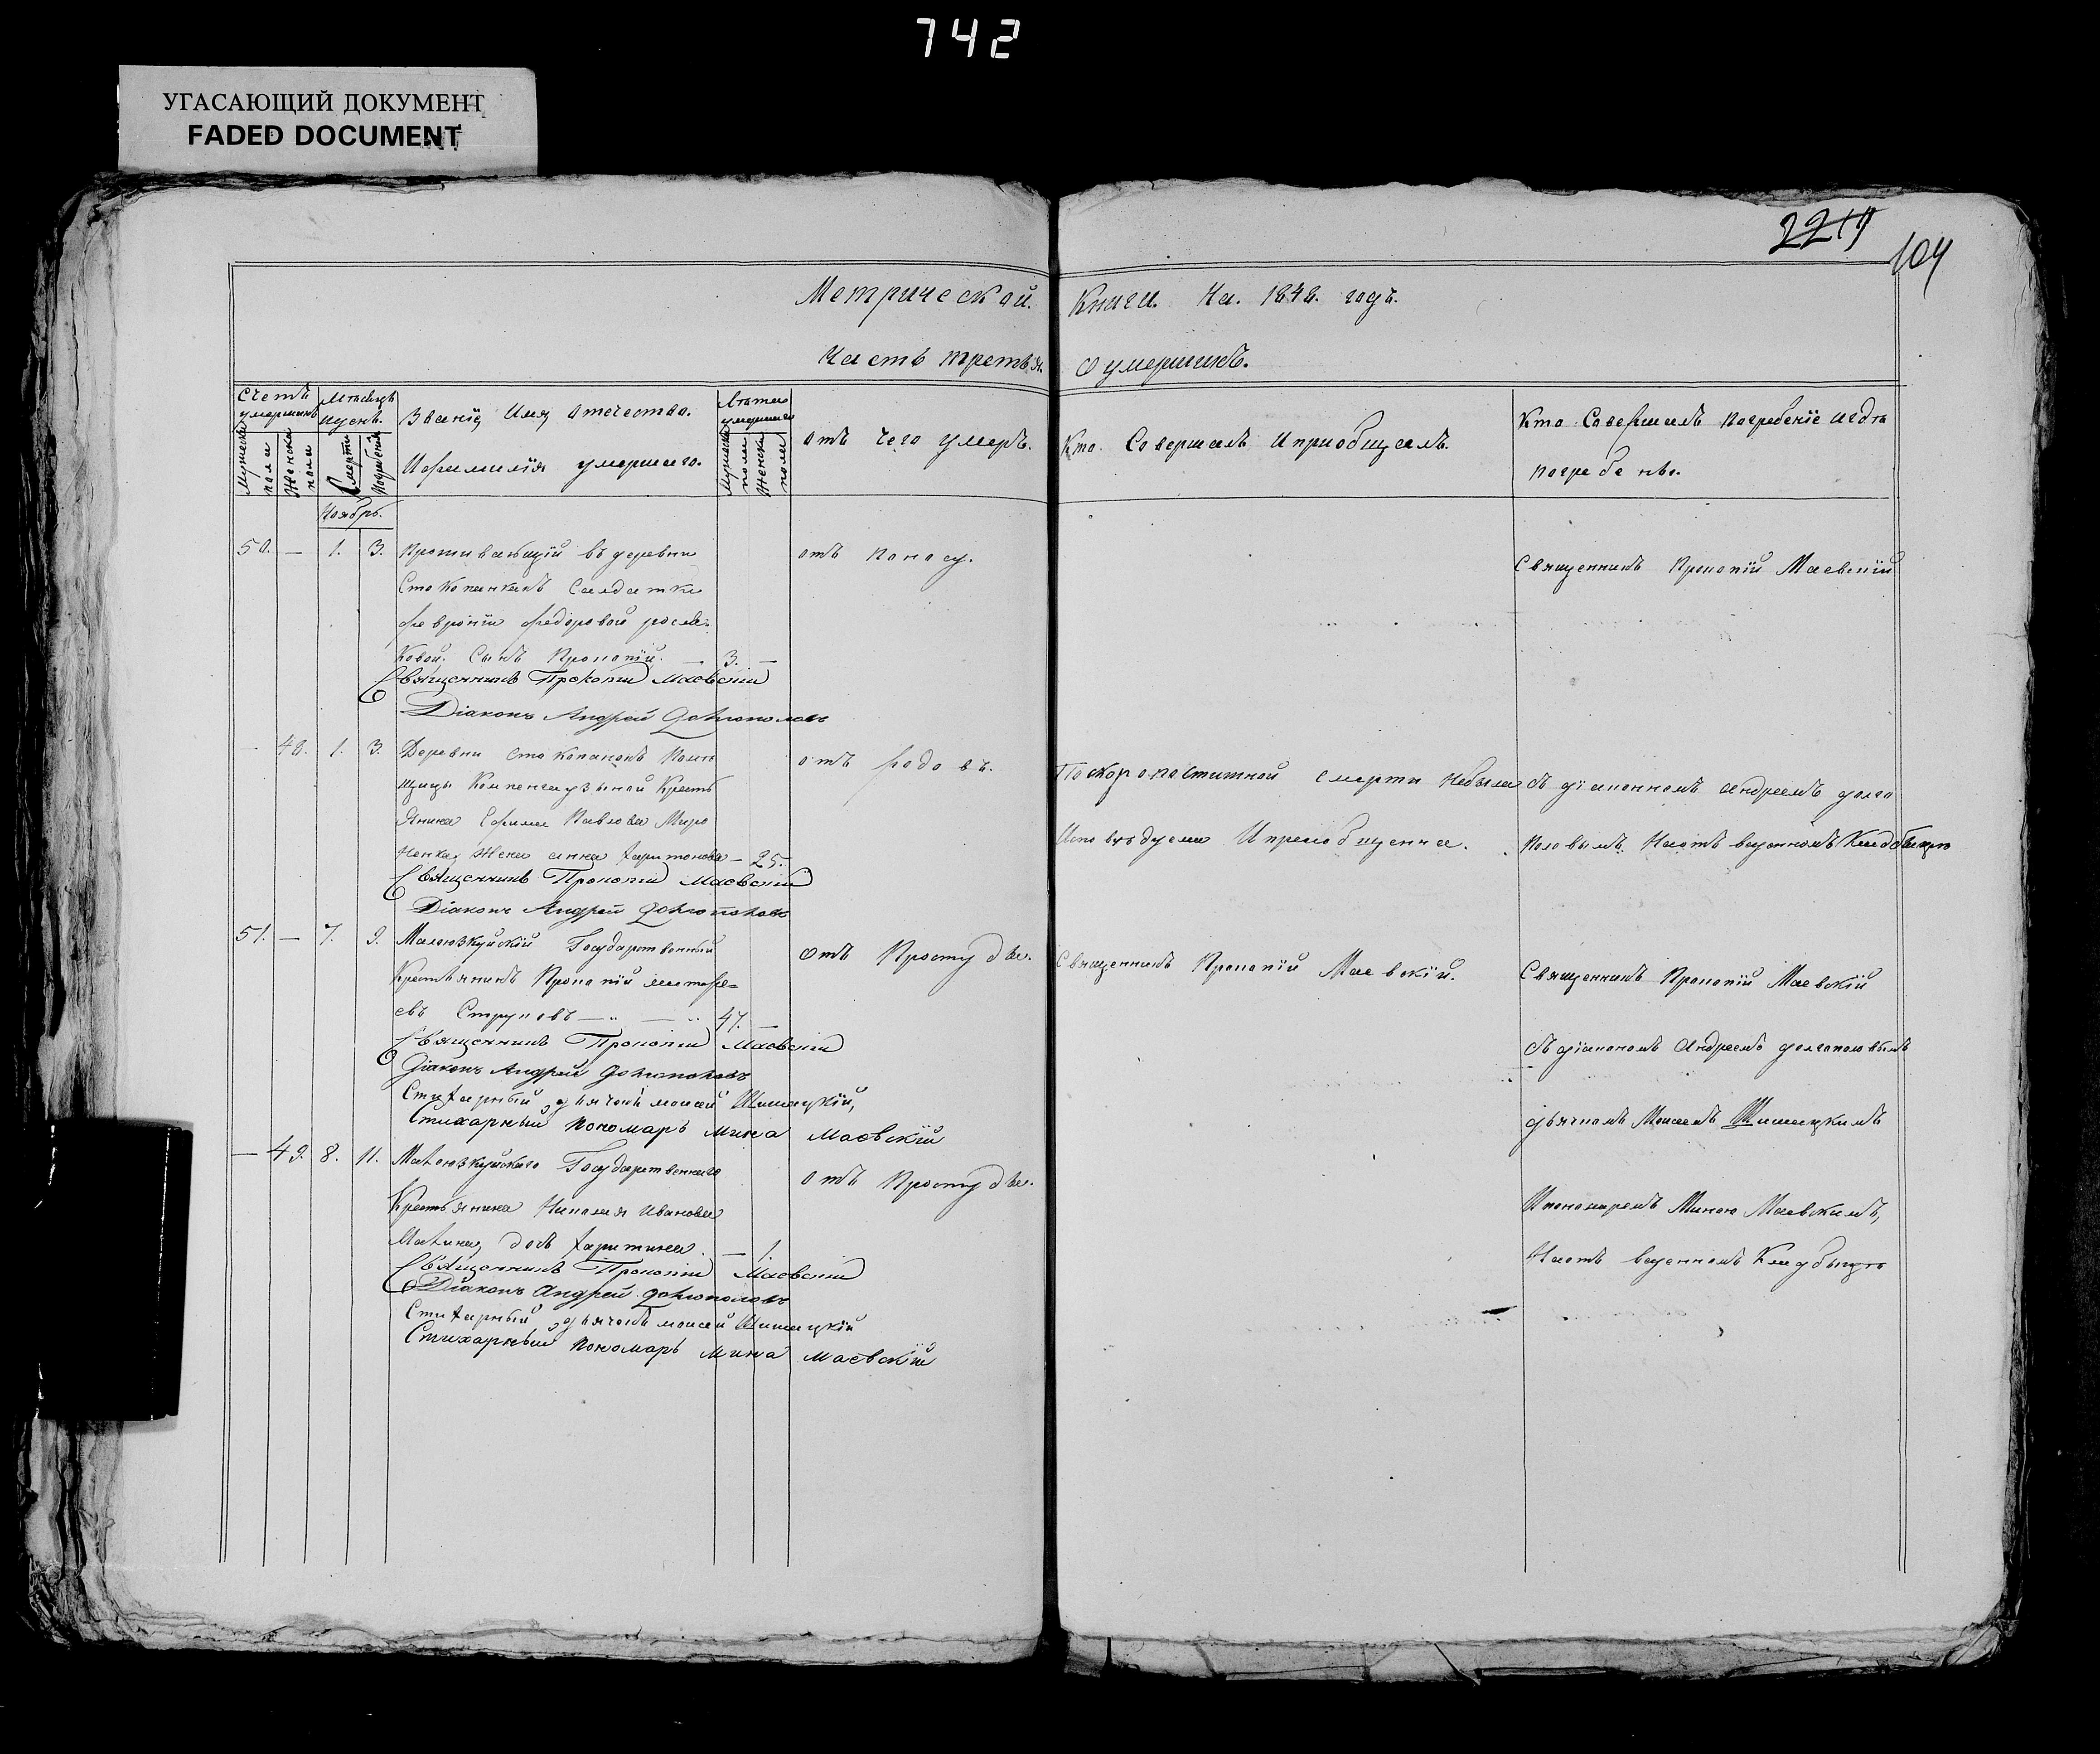 742
УГАСАЮЩИЙ ДОКУМЕНТ
FADED DOCUMENT
104
Метрической. Книги. На. 1848. годъ.
Часть третья. О умершихъ.
Счетъ умершихъ
Мужеска пола
Женска пола
Мѣсяцъ и день.
Смерти
Погребенія
Званіе Имя Отчество.
И фамилія умершаго.
Лѣта умершаго
Мужеска пола
Женска пола
отъ чего умеръ.
Кто. Совершалъ И приобщалъ.
Кто Совершалъ погребеніе и гдѣ
погребены.
Ноябрь.
50. — 1. 3. Проживающій въ деревни
Стокопанкахъ Салдатки
Февроніи Федоровой
Сынъ Прокопій. — 3. —
отъ поносу.
Священникъ Прокопій Маевскій
Священникъ Прокопій Маевскій
Діаконъ Андрей Долгополовъ
— 48. 1. 3. Деревни Стокопанокъ Помѣ
щицы Крестъ
янина Ефима Павлова Миро
ненка, Жена Анна Харитонова — 25.
отъ родовъ.
По скоропостижной смерти Небыла
Исповѣдуема И приобщенна.
съ діакономъ Андреемъ Долго
половымъ. На отъведенномъ Кладбищѣ
Священникъ Прокопій Маевскій
Діаконъ Андрей Долгополовъ
51. — 7. 9. Государственный
Крестьянинъ Прокопій Матфе=
евъ Струковъ — — 47. —
отъ Простуды.
Священникъ Прокопій Маевскій.
Священникъ Прокопій Маевскій
съ діакономъ Андреемъ долгополовымъ
дьячкомъ Моисеемъ Шишацкимъ
И пономаремъ Миною Маевскимъ,
На отъ веденномъ Кладбищѣ
Священникъ Прокопій Маевскій
Діаконъ Андрей Долгополовъ
Стихарный дьячокъ моисей Шишацкій,
Стихарный пономарь Мина Маевскій
— 49. 8. 11. Государственнаго
Крестьянина Николая Иванова
дочь Харитина. — 1.
отъ Простуды.
Священникъ Прокопій Маевскій
Діаконъ Андрей Долгополовъ
Стихарный дьячокъ моисей Шишацкій
Стихарный пономарь Мина Маевскій